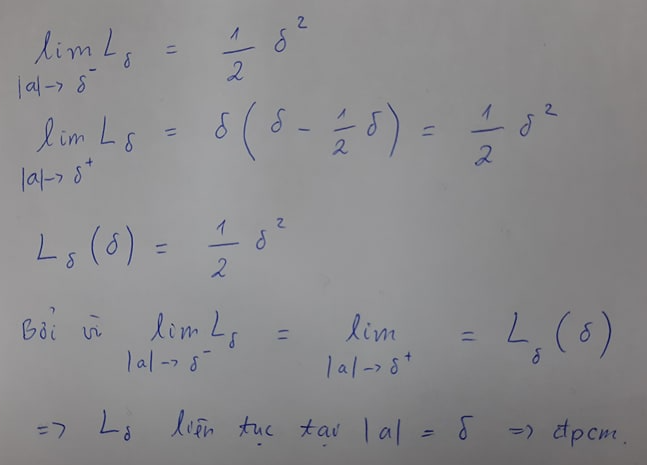 lim L_δ = 1/2 δ²
|a|→ δ⁻
lim L_δ = δ(δ - 1/2 δ) = 1/2 δ²
|a|→ δ⁺
L_δ(δ) = 1/2 δ²
Bởi vì lim L_δ = lim = L_δ(δ)
|a|→ δ⁻ |a|→ δ⁺
=> L_δ liên tục tại |a| = δ => đpcm.